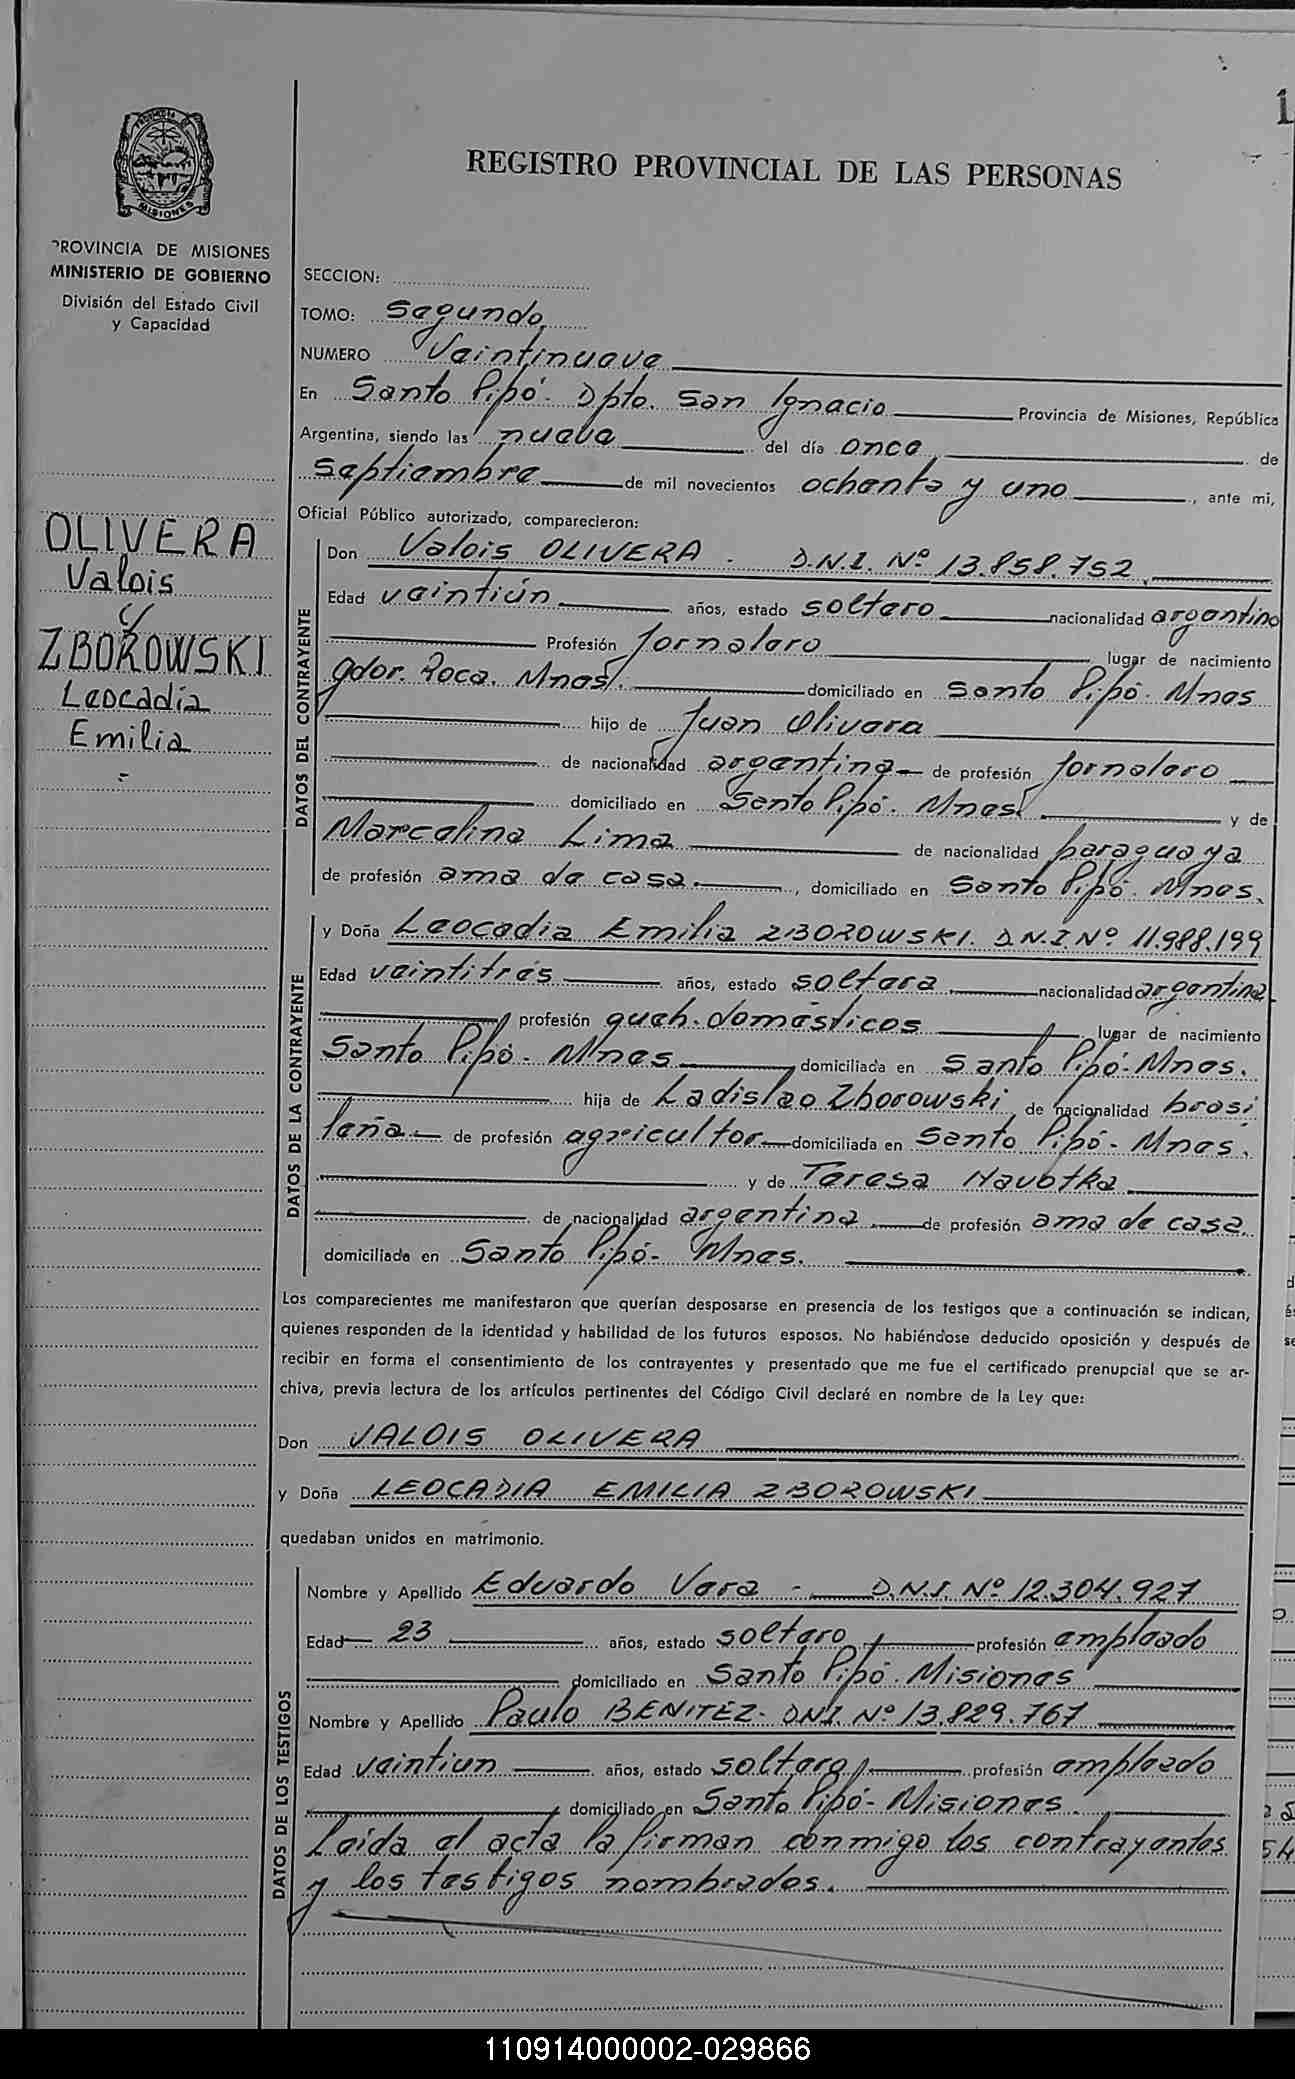 1
PROVINCIA DE MISIONES
REGISTRO PROVINCIAL DE LAS PERSONAS
PROVINCIA DE MISIONES
MINISTERIO DE GOBIERNO
División del Estado Civil
y Capacidad
OLIVERA
Valois
y
ZBOROWSKI
Leocadia
Emilia
SECCION:
TOMO: Segundo
NUMERO Veintinueve
En Santo Pipó. Dpto. San Ignacio Provincia de Misiones, República
Argentina, siendo las nueve del día once de
septiembre de mil novecientos ochenta y uno, ante mi,
Oficial Público autorizado, comparecieron:
DATOS DEL CONTRAYENTE
Don Valois OLIVERA - D.N.I. Nº 13.858.752
Edad veintiún años, estado soltero nacionalidad argentino
Profesión Jornalero lugar de nacimiento
gdor. Roca. Mnes. domiciliado en Santo Pipó. Mnes
hijo de Juan Olivera
de nacionalidad argentina de profesión Jornalero
domiciliado en Santo Pipó. Mnes. y de
Marcelina Lima de nacionalidad paraguaya
de profesión ama de casa, domiciliado en Santo Pipó. Mnes.
DATOS DE LA CONTRAYENTE
y Doña Leocadia Emilia ZBOROWSKI. D.N.I. Nº 11.988.199
Edad veintitrés años, estado soltera nacionalidad argentina
profesión queh. domésticos lugar de nacimiento
Santo Pipó - Mnes domiciliada en Santo Pipó - Mnes.
hija de Ladislao Zborowski, de nacionalidad brasi
leña de profesión agricultor domiciliada en Santo Pipó - Mnes.
y de Teresa
de nacionalidad argentina de profesión ama de casa.
domiciliada en Santo Pipó - Mnes.
Los comparecientes me manifestaron que querían desposarse en presencia de los testigos que a continuación se indican,
quienes responden de la identidad y habilidad de los futuros esposos. No habiéndose deducido oposición y después de
recibir en forma el consentimiento de los contrayentes y presentado que me fue el certificado prenupcial que se ar-
chiva, previa lectura de los artículos pertinentes del Código Civil declaré en nombre de la Ley que:
Don VALOIS OLIVERA
y Doña LEOCADIA EMILIA ZBOROWSKI
quedaban unidos en matrimonio.
DATOS DE LOS TESTIGOS
Nombre y Apellido Eduardo Vera - D.N.I. Nº 12.304.927
Edad 23 años, estado soltero profesión empleado
domiciliado en Santo Pipó. Misiones
Nombre y Apellido Paulo BENITEZ - DNI. Nº 13.829.767
Edad veintiun años, estado soltero profesión empleado
domiciliado en Santo Pipó - Misiones.
Leida el acta la firman conmigo los contrayentes
y los testigos nombrados.
110914000002-029866